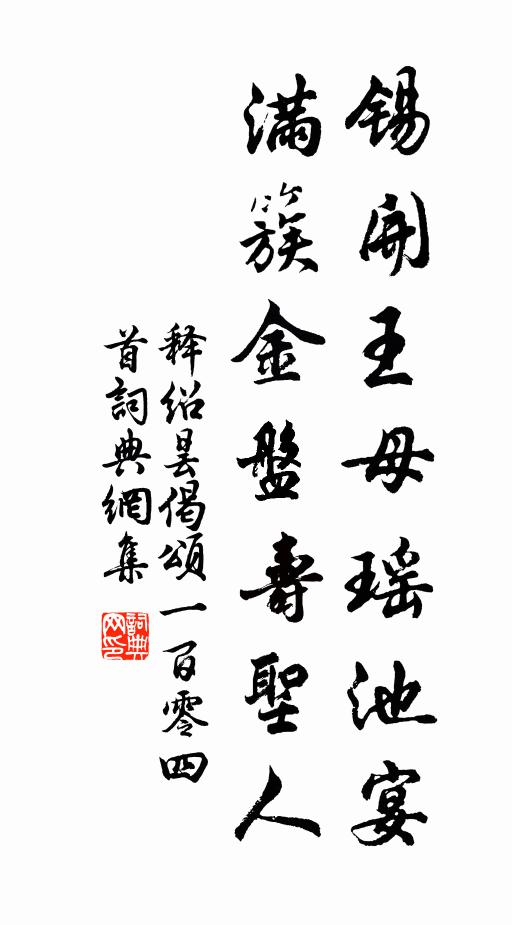 錫開王母瑶池宴
滿簇金盤壽聖人
釋紹曇偈頌一百零四
首詞典網集
詞典
网印